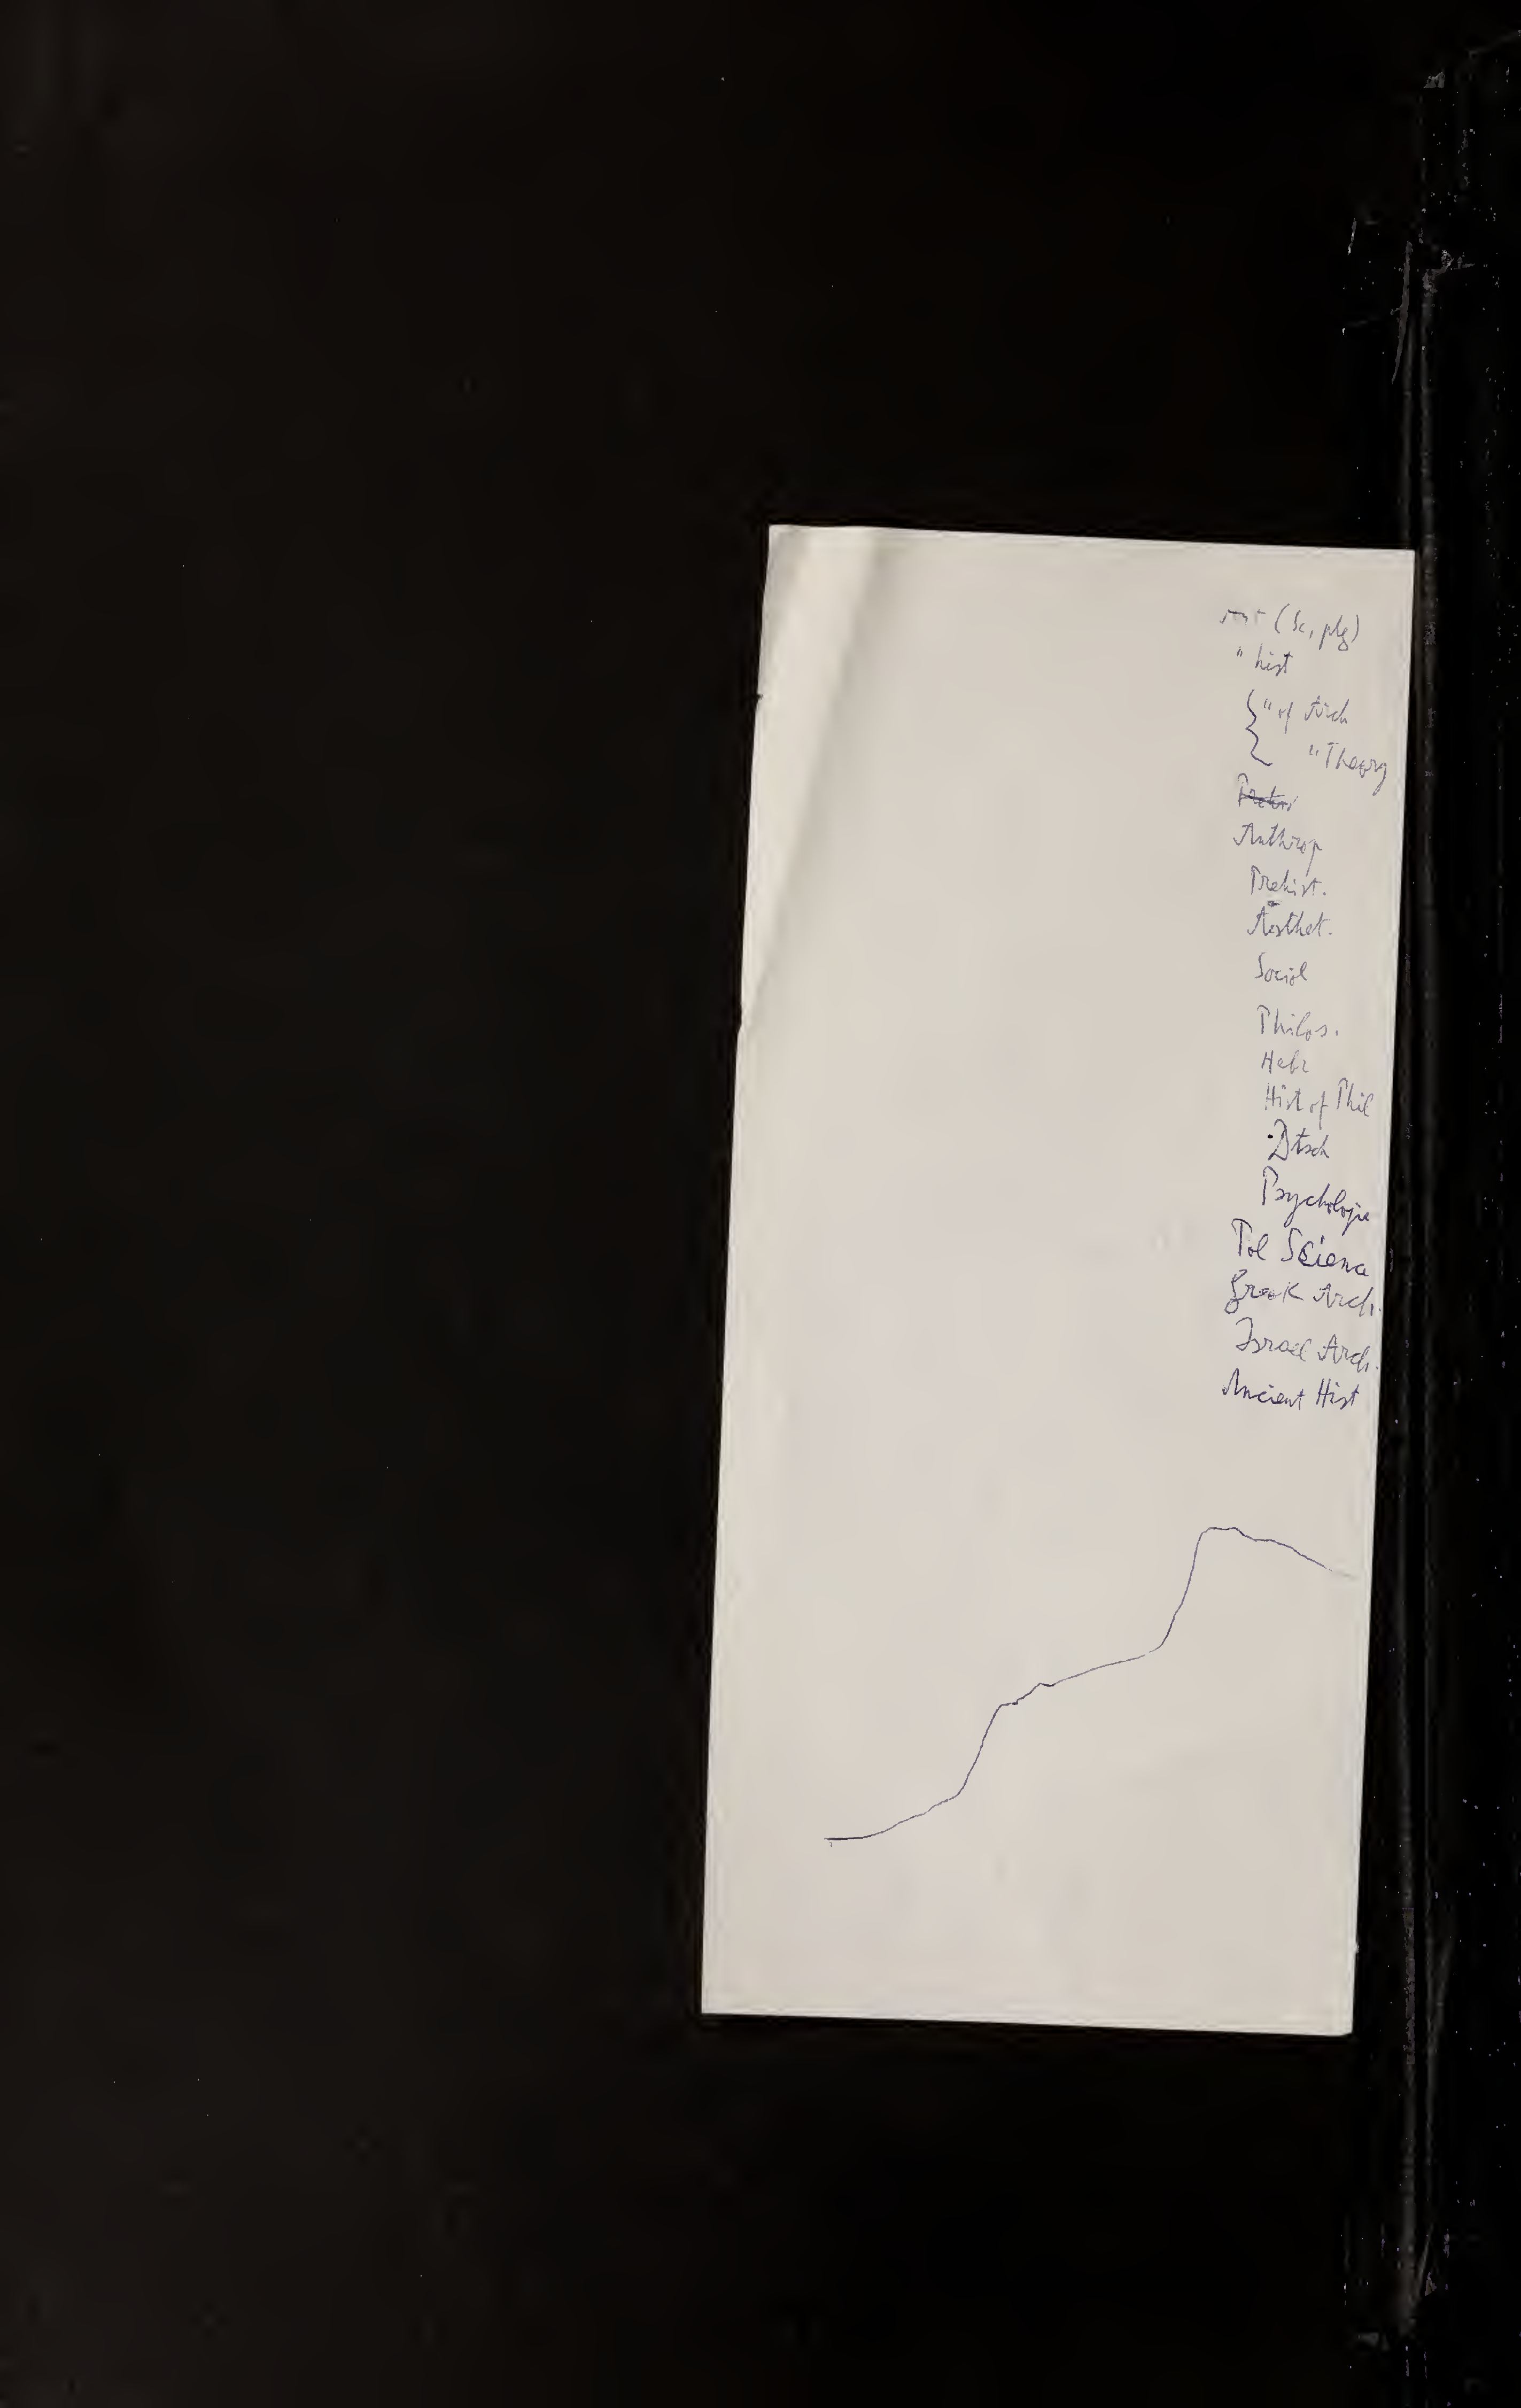 (Sc, plg)
" hist
{ " of Arch
" Theory
Anthrop
Prehist.
Aesthet.
Sociol
Philos.
Hebr
Hist of Phil
Dtsch
Psychologie
Pol Science
Greek Arch.
Israel Arch.
Ancient Hist